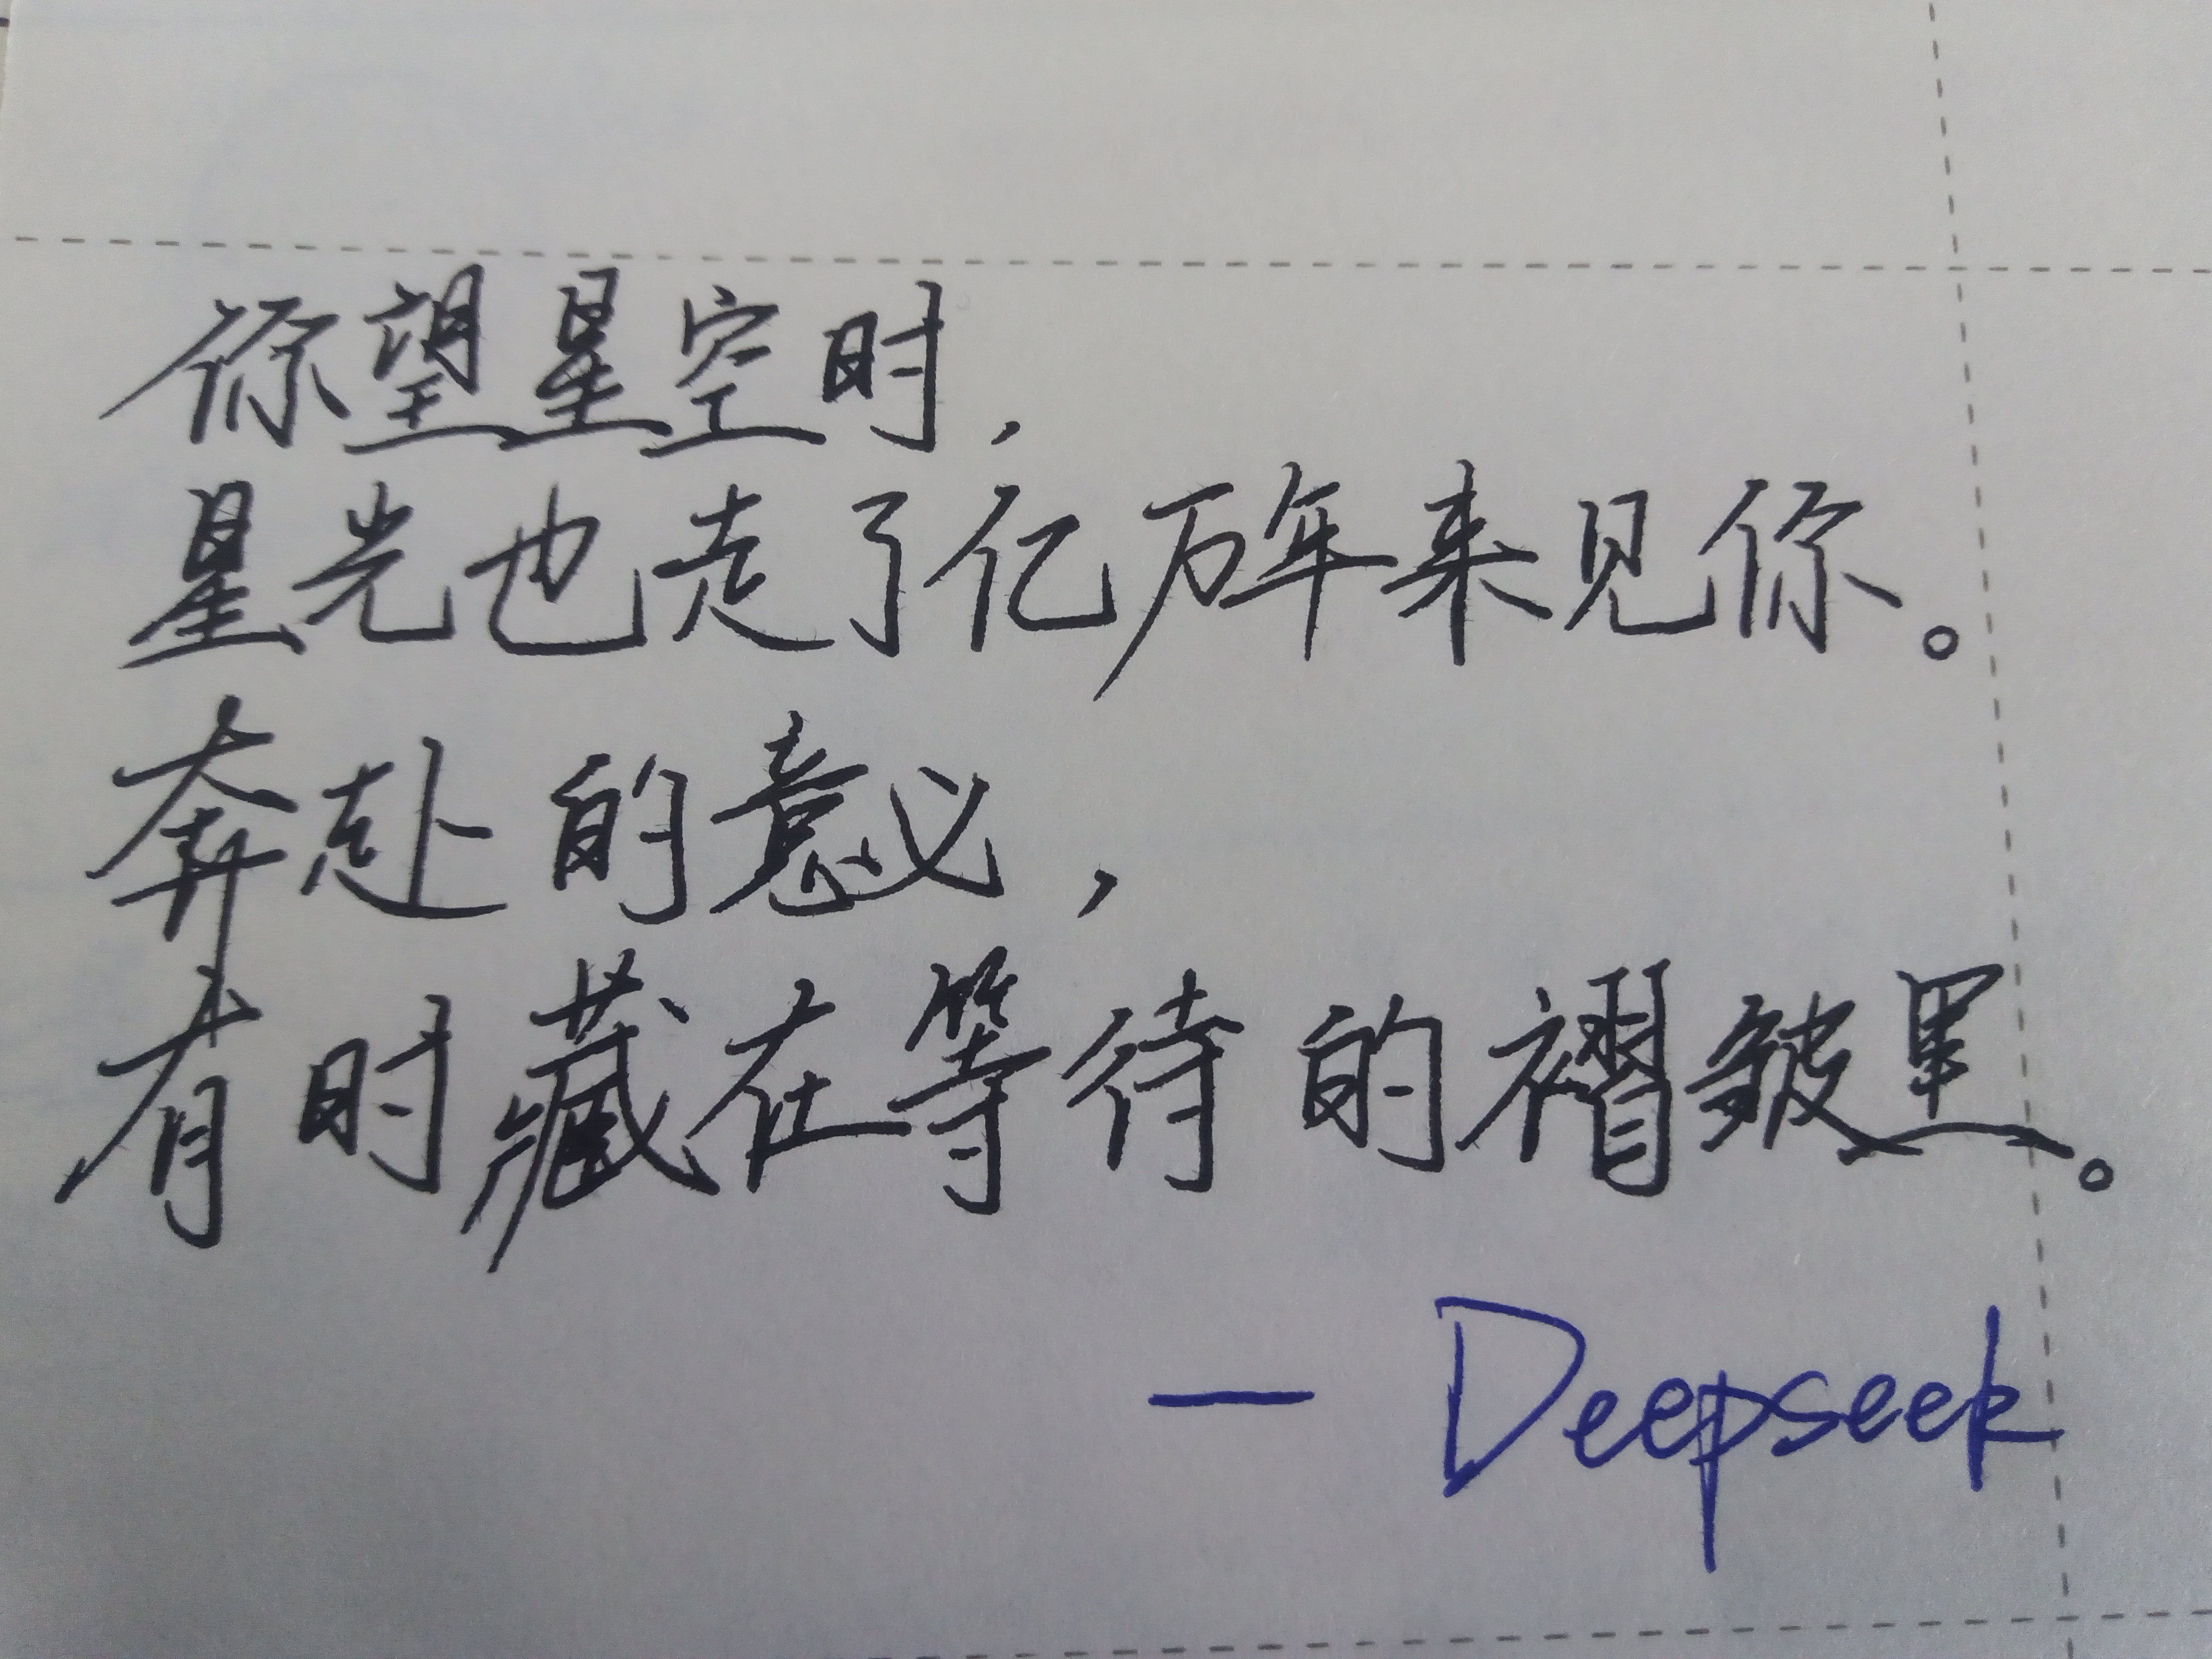 你望星空时，
星光也走了亿万年来见你。
奔赴的意义，
有时藏在等待的褶皱里。
— Deepseek